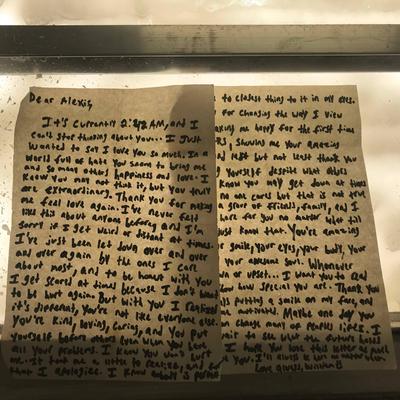 Dear Alexis,
It's currently 2:48AM, and I
can't stop thinking about you... I just
wanted to say I love you so much. In a
world full of hate you seem to bring me
and so many others happiness and love. I
know you may not think it, but you truly
are extraordinary. Thank you for making
me feel love again. I've never felt
like this about anyone before and I'm
sorry if I get weird or distant at times.
I've just been let down over and over
and over again by the ones I care
about most, and to be honest with you
I get scared at times because I don't wanna
be hurt again. But with you I realized
it's different, you're not like everyone else.
You're kind, loving, caring, and you put
yourself before others even when you have
all your problems. I know you won't hurt
me. It took me a little to realize, and for
that I apologize. I know nobody is perfect
to closest thing to it in my eyes.
For changing the way I view
making me happy for the first time
showing me your amazing
and last but not least thank you
yourself despite what others
know you may get down at times
no one cares but that is not true
a great of friends, family, and I
here for you no matter what till
Just know that. You're amazing
smile, your eyes, your body, your
your awesome soul. Whenever
or upset... I want you to read
how special you are. Thank you
putting a smile on my face, and
motivated. Maybe one day you
change many of peoples lifes. I
wait to see what the future holds
I hope you love this letter as much
you. I'll always be here no matter what.
Love always,